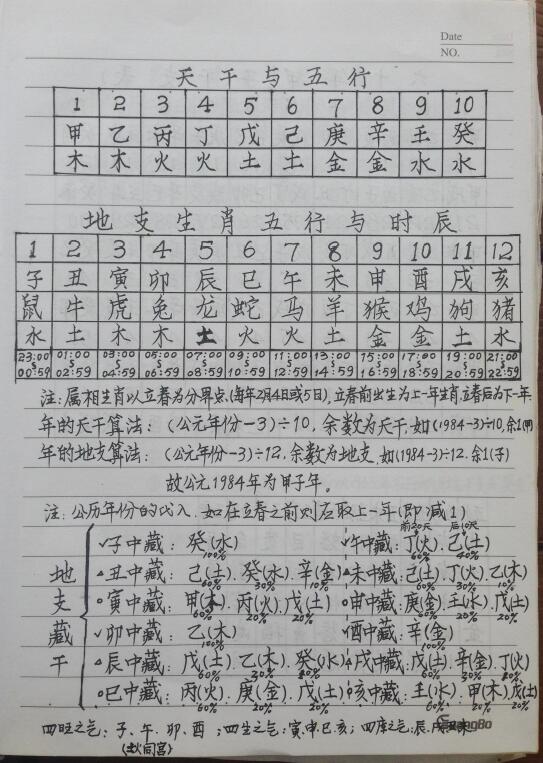 Date
NO.
天干与五行
1 2 3 4 5 6 7 8 9 10
甲 乙 丙 丁 戊 己 庚 辛 壬 癸
木 木 火 火 土 土 金 金 水 水
地支生肖五行与时辰
1 2 3 4 5 6 7 8 9 10 11 12
子 丑 寅 卯 辰 巳 午 未 申 酉 戌 亥
鼠 牛 虎 兔 龙 蛇 马 羊 猴 鸡 狗 猪
水 土 木 木 土 火 火 土 金 金 土 水
23:00 01:00 03:00 05:00 07:00 09:00 11:00 13:00 15:00 17:00 19:00 21:00
00:59 02:59 04:59 06:59 08:59 10:59 12:59 14:59 16:59 18:59 20:59 22:59
注:属相生肖以立春为分界点,(每年2月4日或5日),立春前出生为上一年生肖,立春后为下一年.
年的天干算法:(公元年份-3)÷10,余数为天干,如(1984-3)÷10,余1(甲)
年的地支算法:(公元年份-3)÷12,余数为地支,如(1984-3)÷12.余1(子)
故公元1984年为甲子年。
注:公历年份的代入,如在立春之前则应取上一年(即减1)
前20天 后10天
✓子中藏:癸(水) ✓午中藏:丁(火).己(土)
100% 60% 40%
△丑中藏:己(土).癸(水).辛(金) △未中藏:己(土).丁(火).乙(木)
60% 30% 10% 60% 30% 10%
○寅中藏:甲(木).丙(火).戊(土) ○申中藏:庚(金).壬(水).戊(土)
60% 20% 20% 60% 20% 20%
地支藏干
✓卯中藏:乙(木) ✓酉中藏:辛(金)
100% 100%
△辰中藏:戊(土).乙(木).癸(水) △戌中藏:戊(土).辛(金).丁(火)
60% 30% 60% 30%
○巳中藏:丙(火).庚(金).戊(土) ○亥中藏:壬(水).甲(木).戊(土)
60% 20% 20% 60% 20% 20%
四旺之气:子、午、卯、酉;四生之气:寅.申.巳.亥;四库之气:辰.戌.丑.未